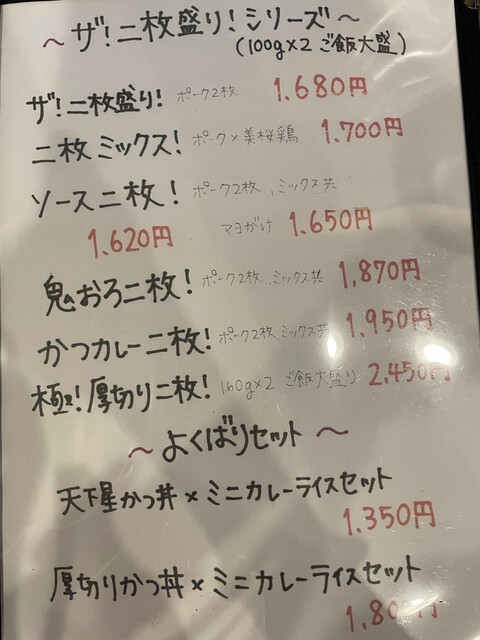 〜ザ!二枚盛り!シリーズ〜
(100g×2 ご飯大盛)
ザ!二枚盛り! ポーク2枚 1.680円
二枚ミックス! ポーク×美桜鶏 1.700円
ソース二枚! ポーク2枚、ミックス共
1.620円 マヨがけ 1.650円
鬼おろ二枚! ポーク2枚、ミックス共 1.870円
かつカレー二枚! ポーク2枚、ミックス共 1.950円
極!厚切り二枚! 160g×2 ご飯大盛り 2.450円
〜よくばりセット〜
天下星かつ丼×ミニカレーライスセット
1.350円
厚切りかつ丼×ミニカレーライスセット